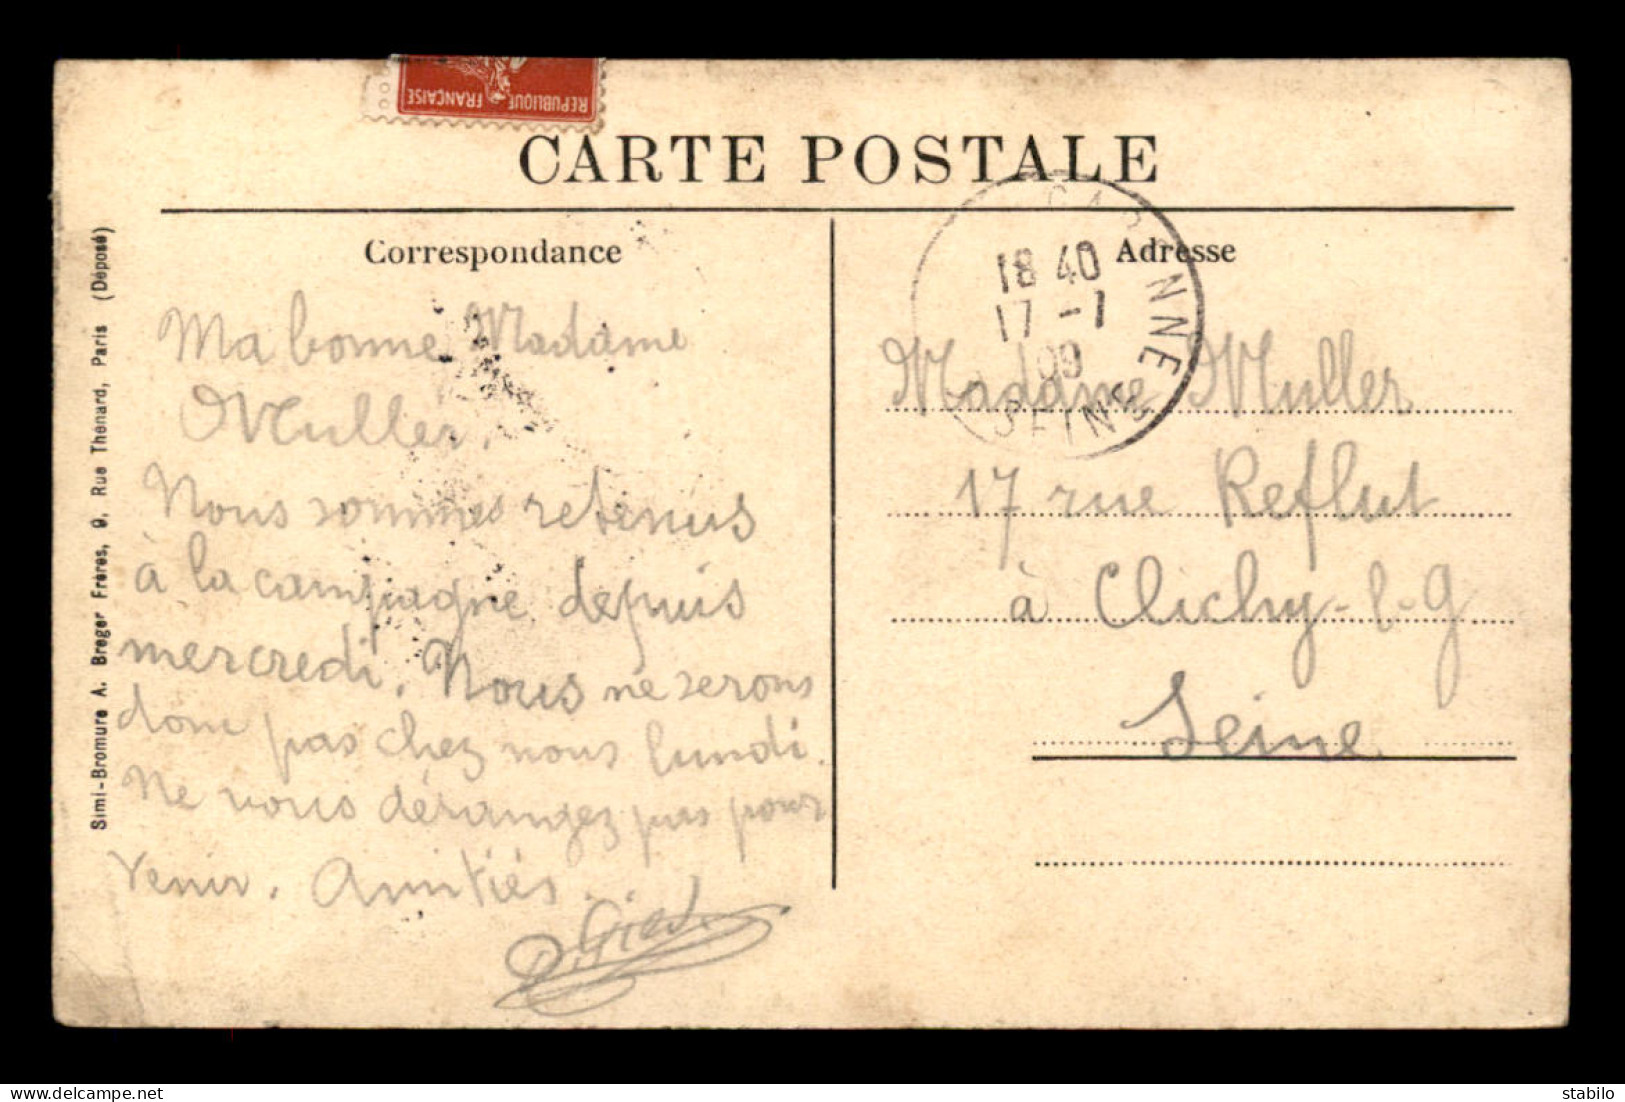 REPUBLIQUE FRANÇAISE
CARTE POSTALE
Correspondance
Ma bonne Madame
Muller,
Nous sommes retenus
à la campagne depuis
mercredi. Nous ne serons
donc pas chez nous lundi.
Ne vous dérangez pas pour
venir. Amitiés.
Simi-Bromure A. Breger Frères, 9, Rue Thénard, Paris (Déposé)
Adresse
18 40
17 -7
09
SEINE
Madame Muller
17 rue Reflut
à Clichy-l-G
Seine
stabilo